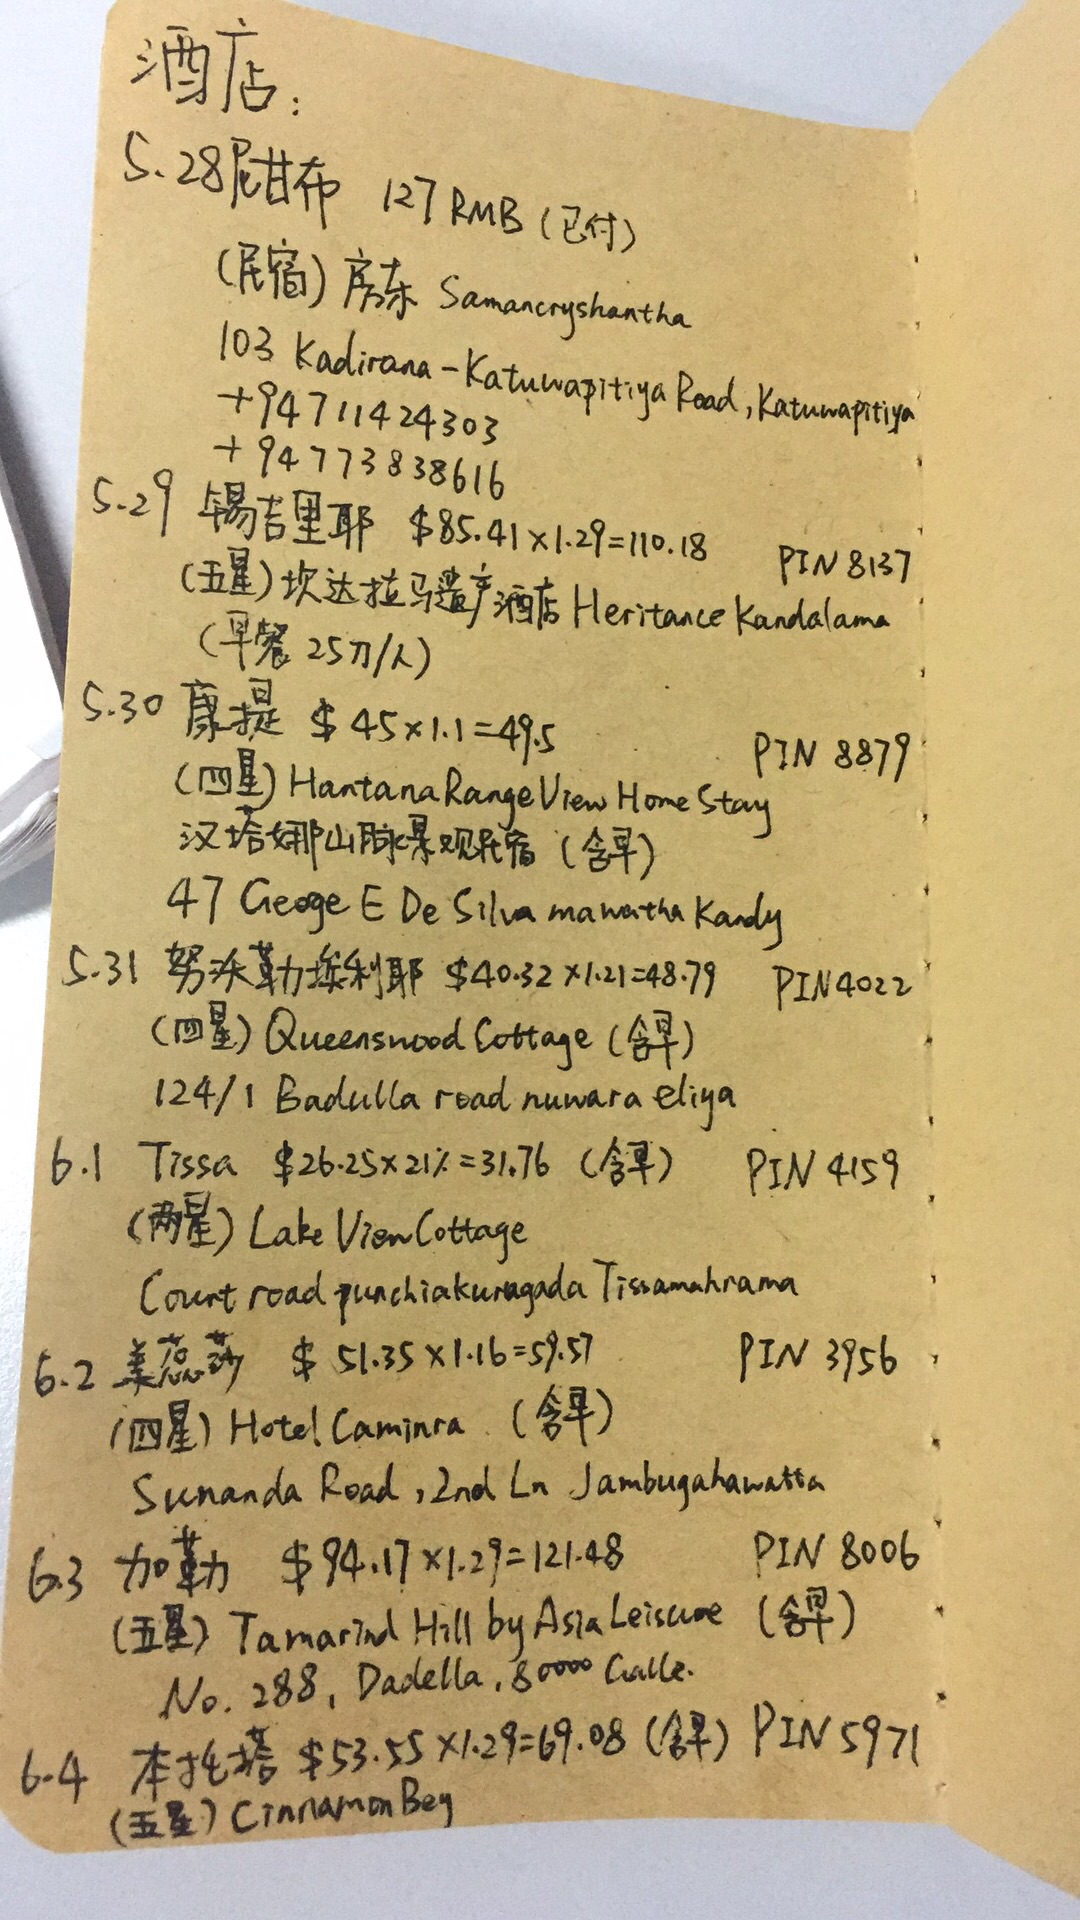 酒店:
5.28尼甘布 127RMB(已付)
(民宿)房东 Samancryshantha
103 Kadirana-Katuwapitiya Road,Katuwapitiya
+94711424303
+94773838616
5.29 锡吉里耶 $85.41×1.29=110.18 PIN8137
(五星)坎达拉马遗产酒店 Heritance Kandalama
(早餐 25刀/人)
5.30 康提 $45×1.1=49.5 PIN 8879
(四星)Hantana Range View Home Stay
汉塔娜山脉景观民宿(含早)
47 Geoge E De Silva mawatha Kandy
5.31 努沃勒埃利耶 $40.32×1.21=48.79 PIN4022
(四星)Queenswood Cottage(含早)
124/1 Badulla road nuwara eliya
6.1 Tissa $26.25×21%=31.76 (含早) PIN 4159
(两星)Lake View Cottage
Court road punchiakurugada Tissamahrama
6.2 美蕊莎 $51.35×1.16=59.57 PIN 3956
(四星)Hotel Caminra (含早)
Sunanda Road,2nd Ln Jambugahawatta
6.3 加勒 $94.17×1.29=121.48 PIN 8006
(五星)Tamarind Hill by Asia Leisure (含早)
No.288, Dadella, 80000 Galle.
6.4 本托塔 $53.55×1.29=69.08(含早) PIN 5971
(五星)Cinnamon Bey